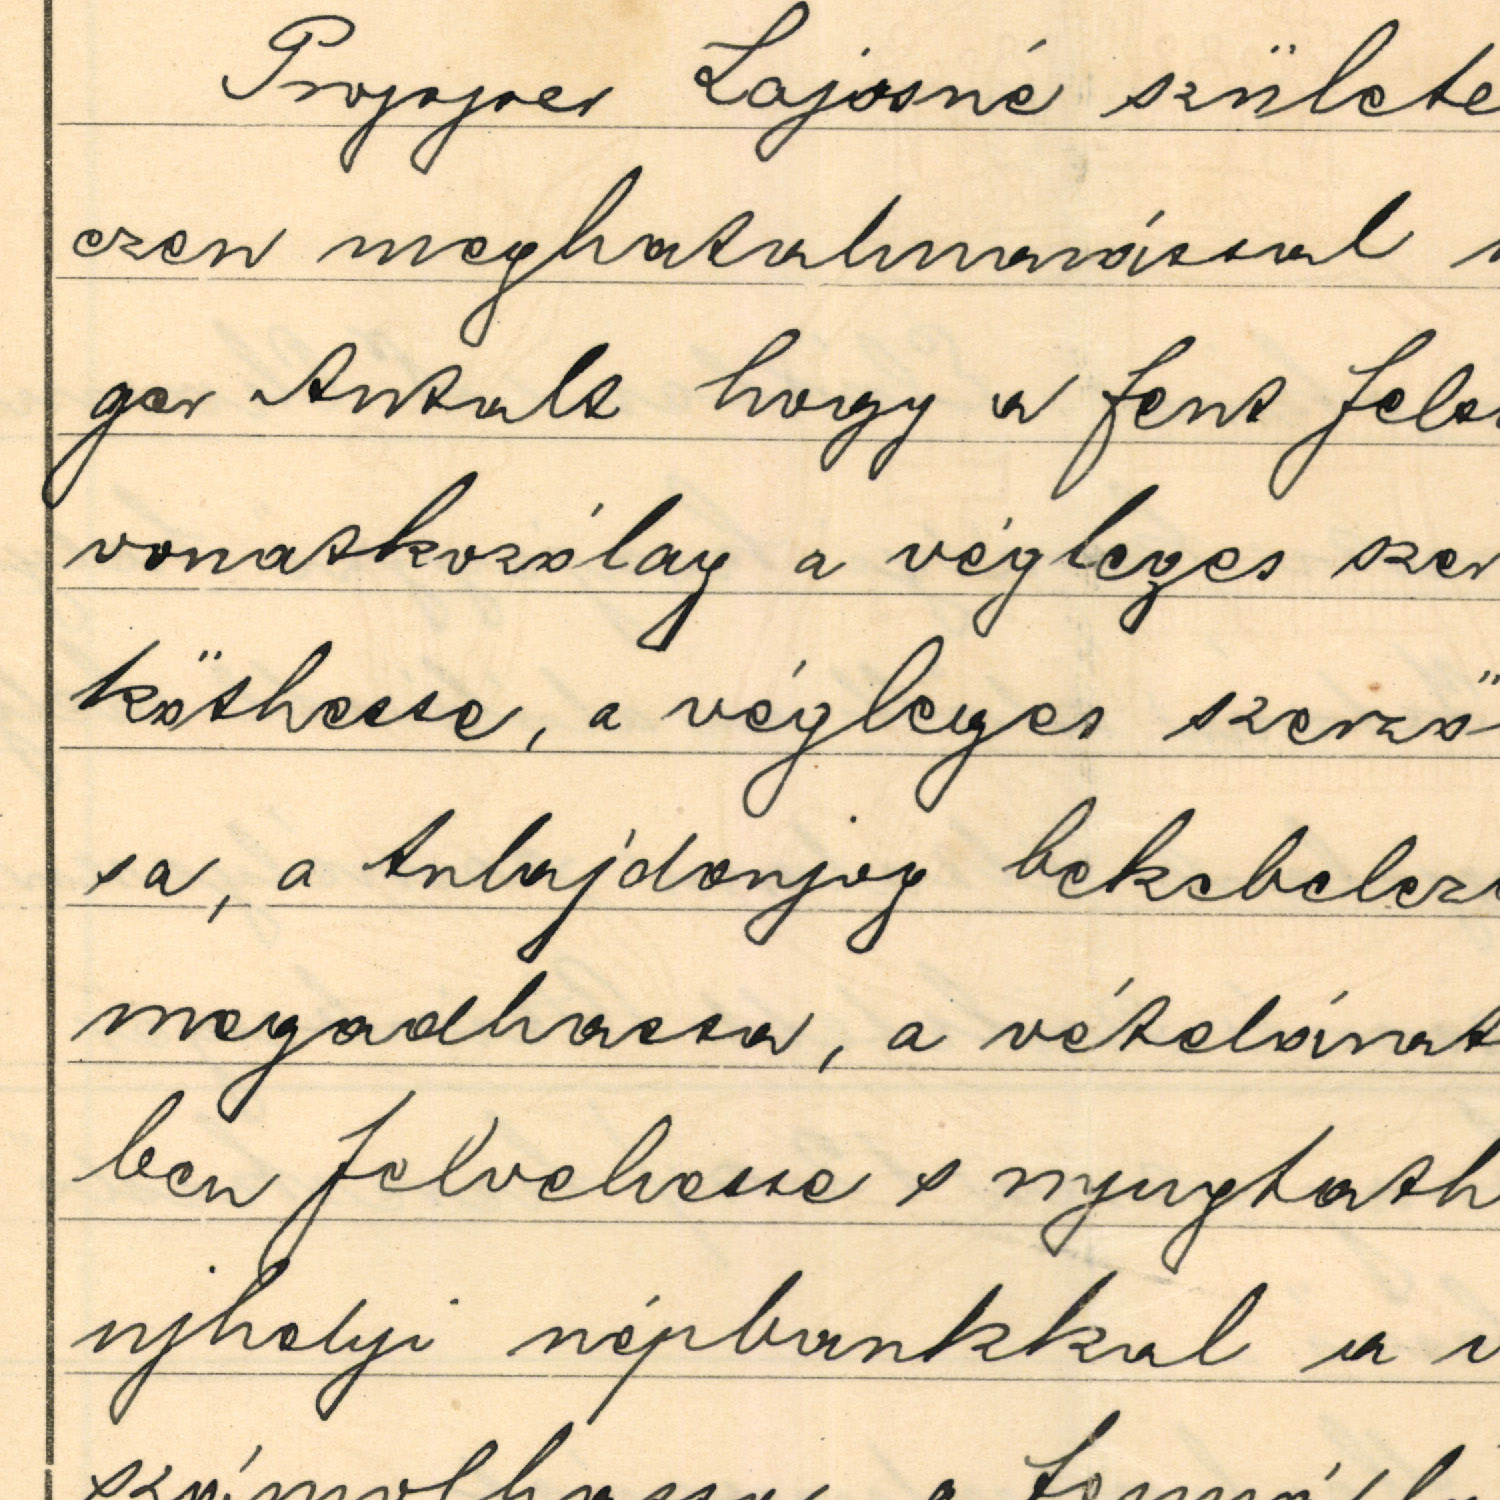 Propper Lajosné születe
ezen meghatalmazással
ger Antalt hogy a fent fels
vonatkozólag a végleges szer
köthesse, a végleges szerző
sa, a tulajdonjog bekebelezé
megadhassa, a vételárat
ben felvehesse s nyugtath
ujhelyi népbankkal a v
számolhassa, a